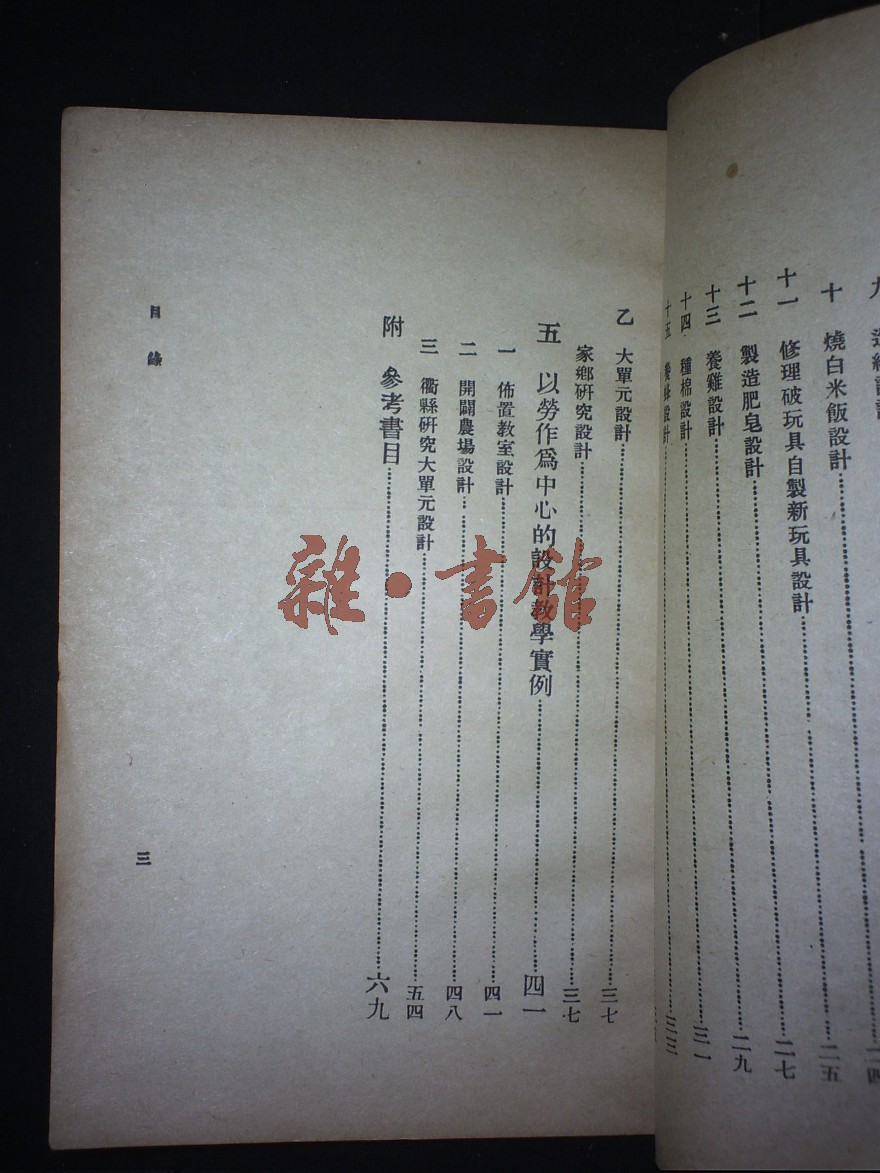 九 造紙設計……二四
十 燒白米飯設計……二五
十一 修理破玩具自製新玩具設計……二七
十二 製造肥皂設計……二九
十三 養雞設計……三一
十四 種棉設計……三三
十五 設計……
乙 大單元設計……三七
家鄉研究設計……三七
五 以勞作爲中心的設計教學實例……四一
一 佈置教室設計……四一
二 開闢農場設計……四八
三 衢縣研究大單元設計……五四
附 參考書目……六九
目錄
三
雜·書館